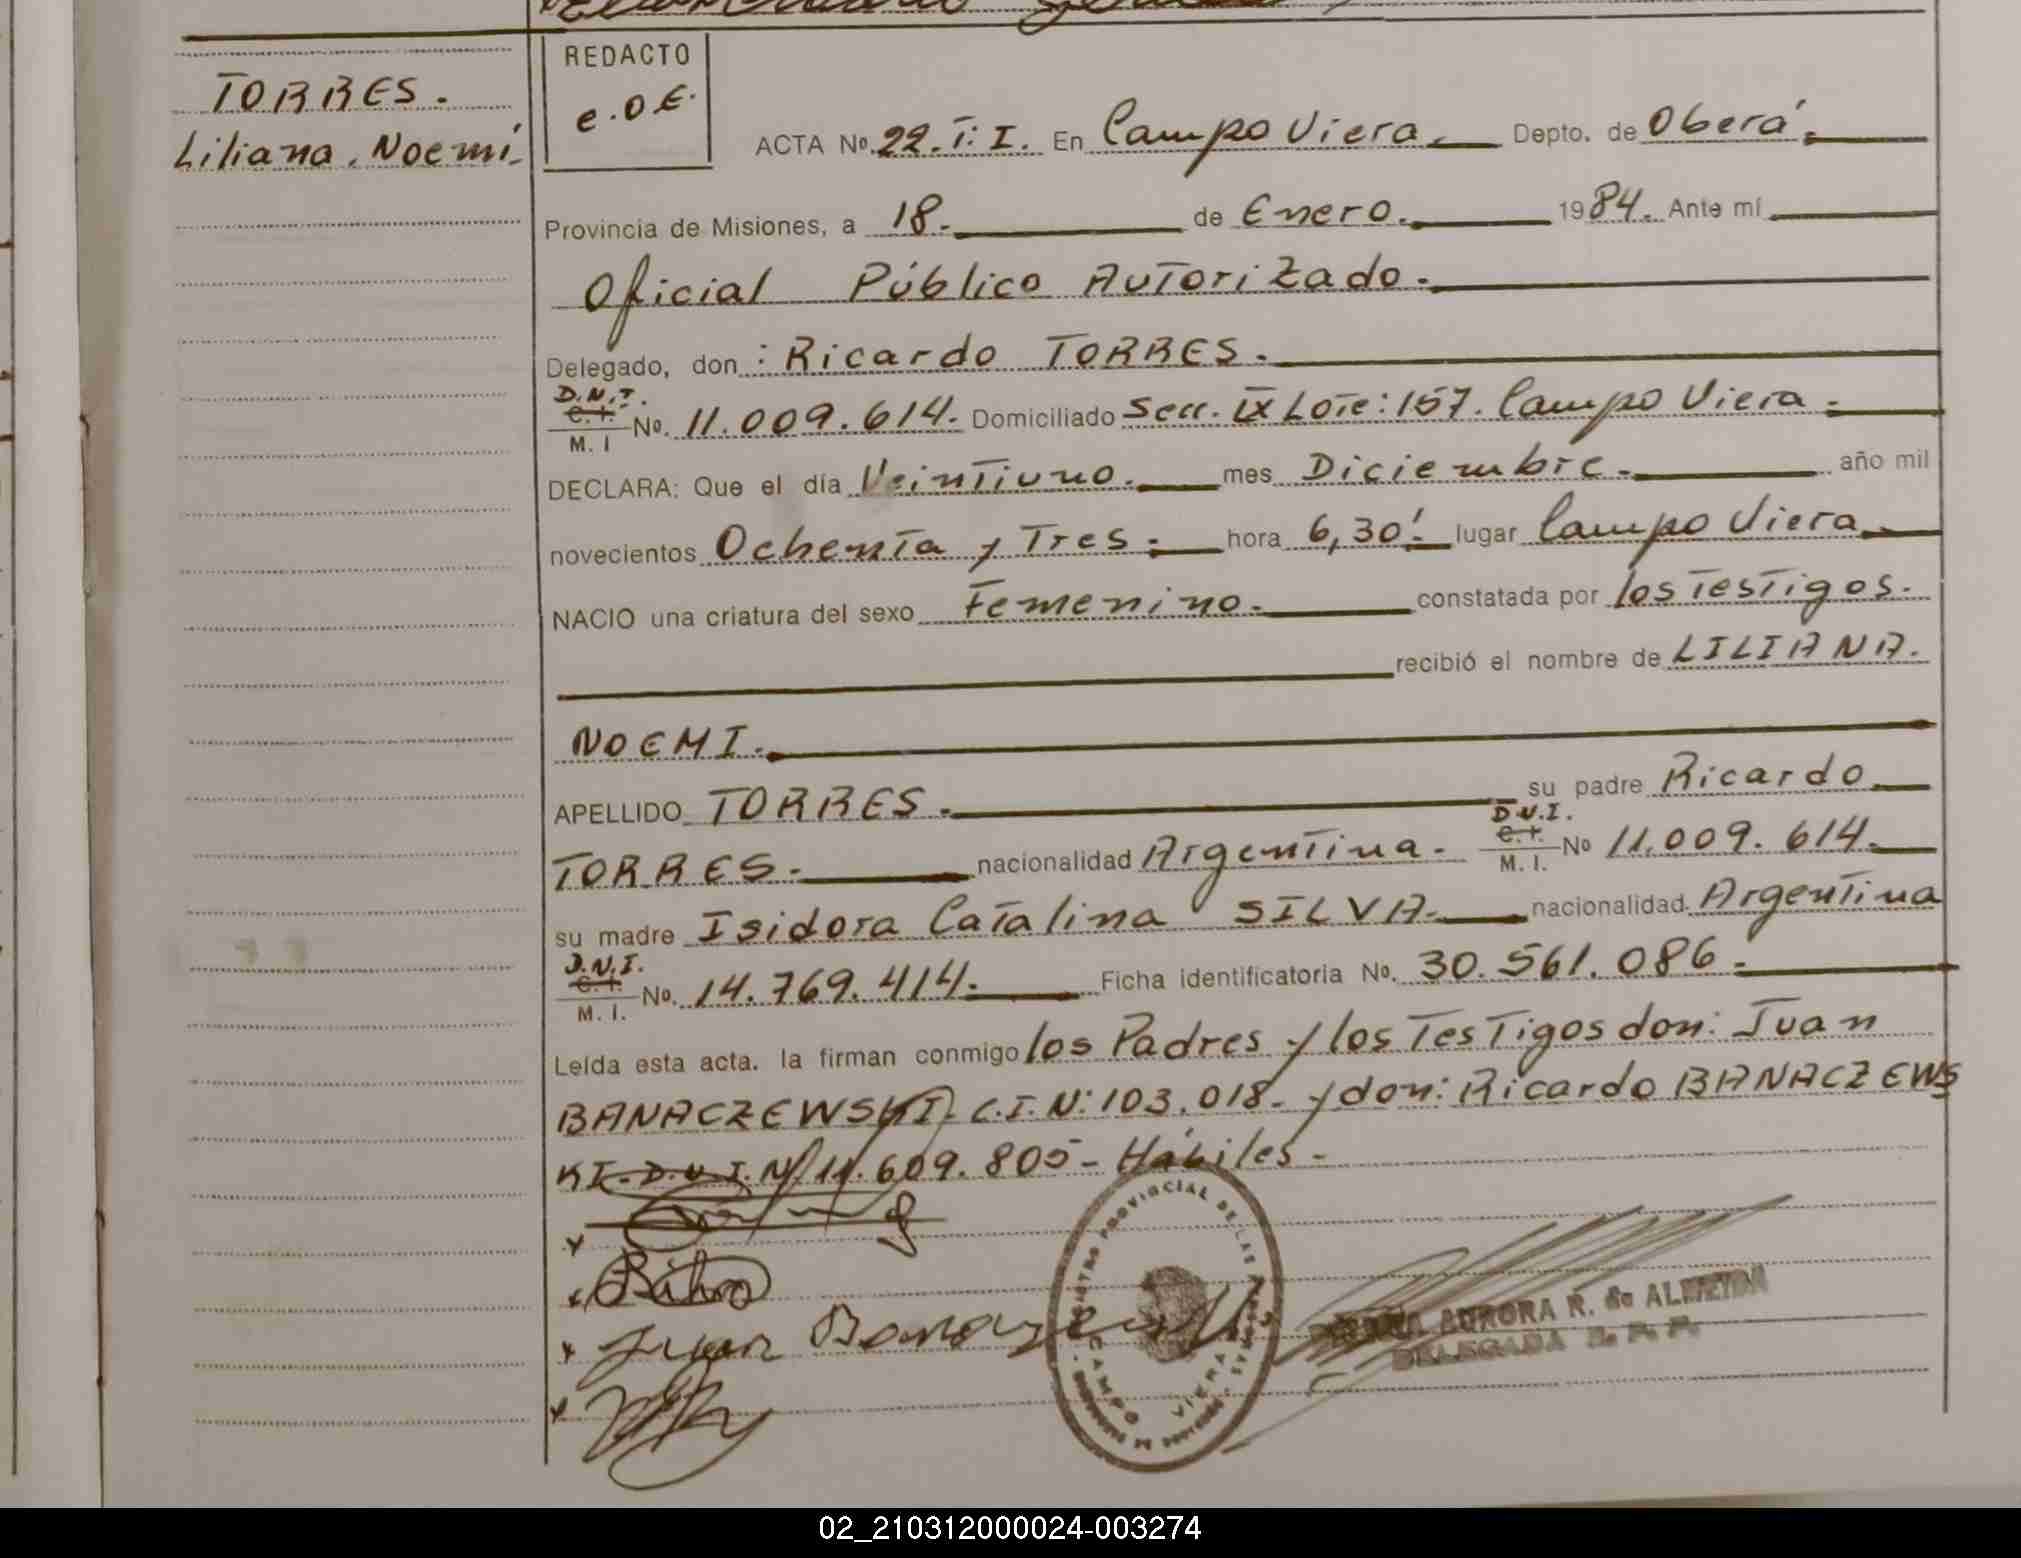 TORRES.
Liliana. Noemí.
REDACTO
e.O.E.
ACTA No. 22. T: I. En Campo Viera. Depto. de Oberá.
Provincia de Misiones, a 18. de Enero. 1984. Ante mí
Oficial Público Autorizado.
Delegado, don: Ricardo TORRES.
D.N.I.
C.I.
M. I No. 11.009.614. Domiciliado Secc. IX Lote: 157. Campo Viera.
DECLARA: Que el día Veintiuno. mes Diciembre. año mil
novecientos Ochenta y Tres. hora 6,30! lugar Campo Viera
NACIO una criatura del sexo Femenino. constatada por los Testigos.
recibió el nombre de LILIANA.
NOEMI.
APELLIDO TORRES. su padre Ricardo
TORRES. nacionalidad Argentina. D.N.I. C.I. M. I. No 11.009.614.
su madre Isidora Catalina SILVA. nacionalidad Argentina
D.N.I.
C.I.
M. I. No. 14.769.414. Ficha identificatoria No. 30.561.086.
Leída esta acta. la firman conmigo los Padres y los Testigos don: Juan
BANACZEWSKI C.I. N: 103.018. y don: Ricardo BANACZEWS
KI. D.N.I. N/ 11.609.805- Hábiles-
Juan
CAMPO VIERA
AURORA R. de ALMEIDA
DELEGADA R. P. P.
02_210312000024-003274